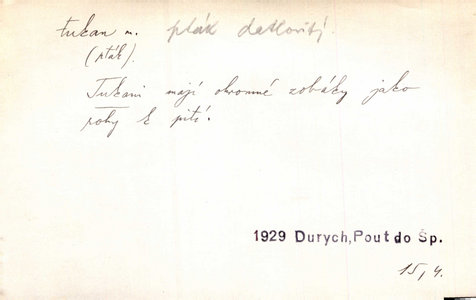 tukan m. pták datlovitý.
(pták).
Tukani mají ohromné zobáky jako
rohy k pití.
1929 Durych, Pout do Šp.
15, 4.